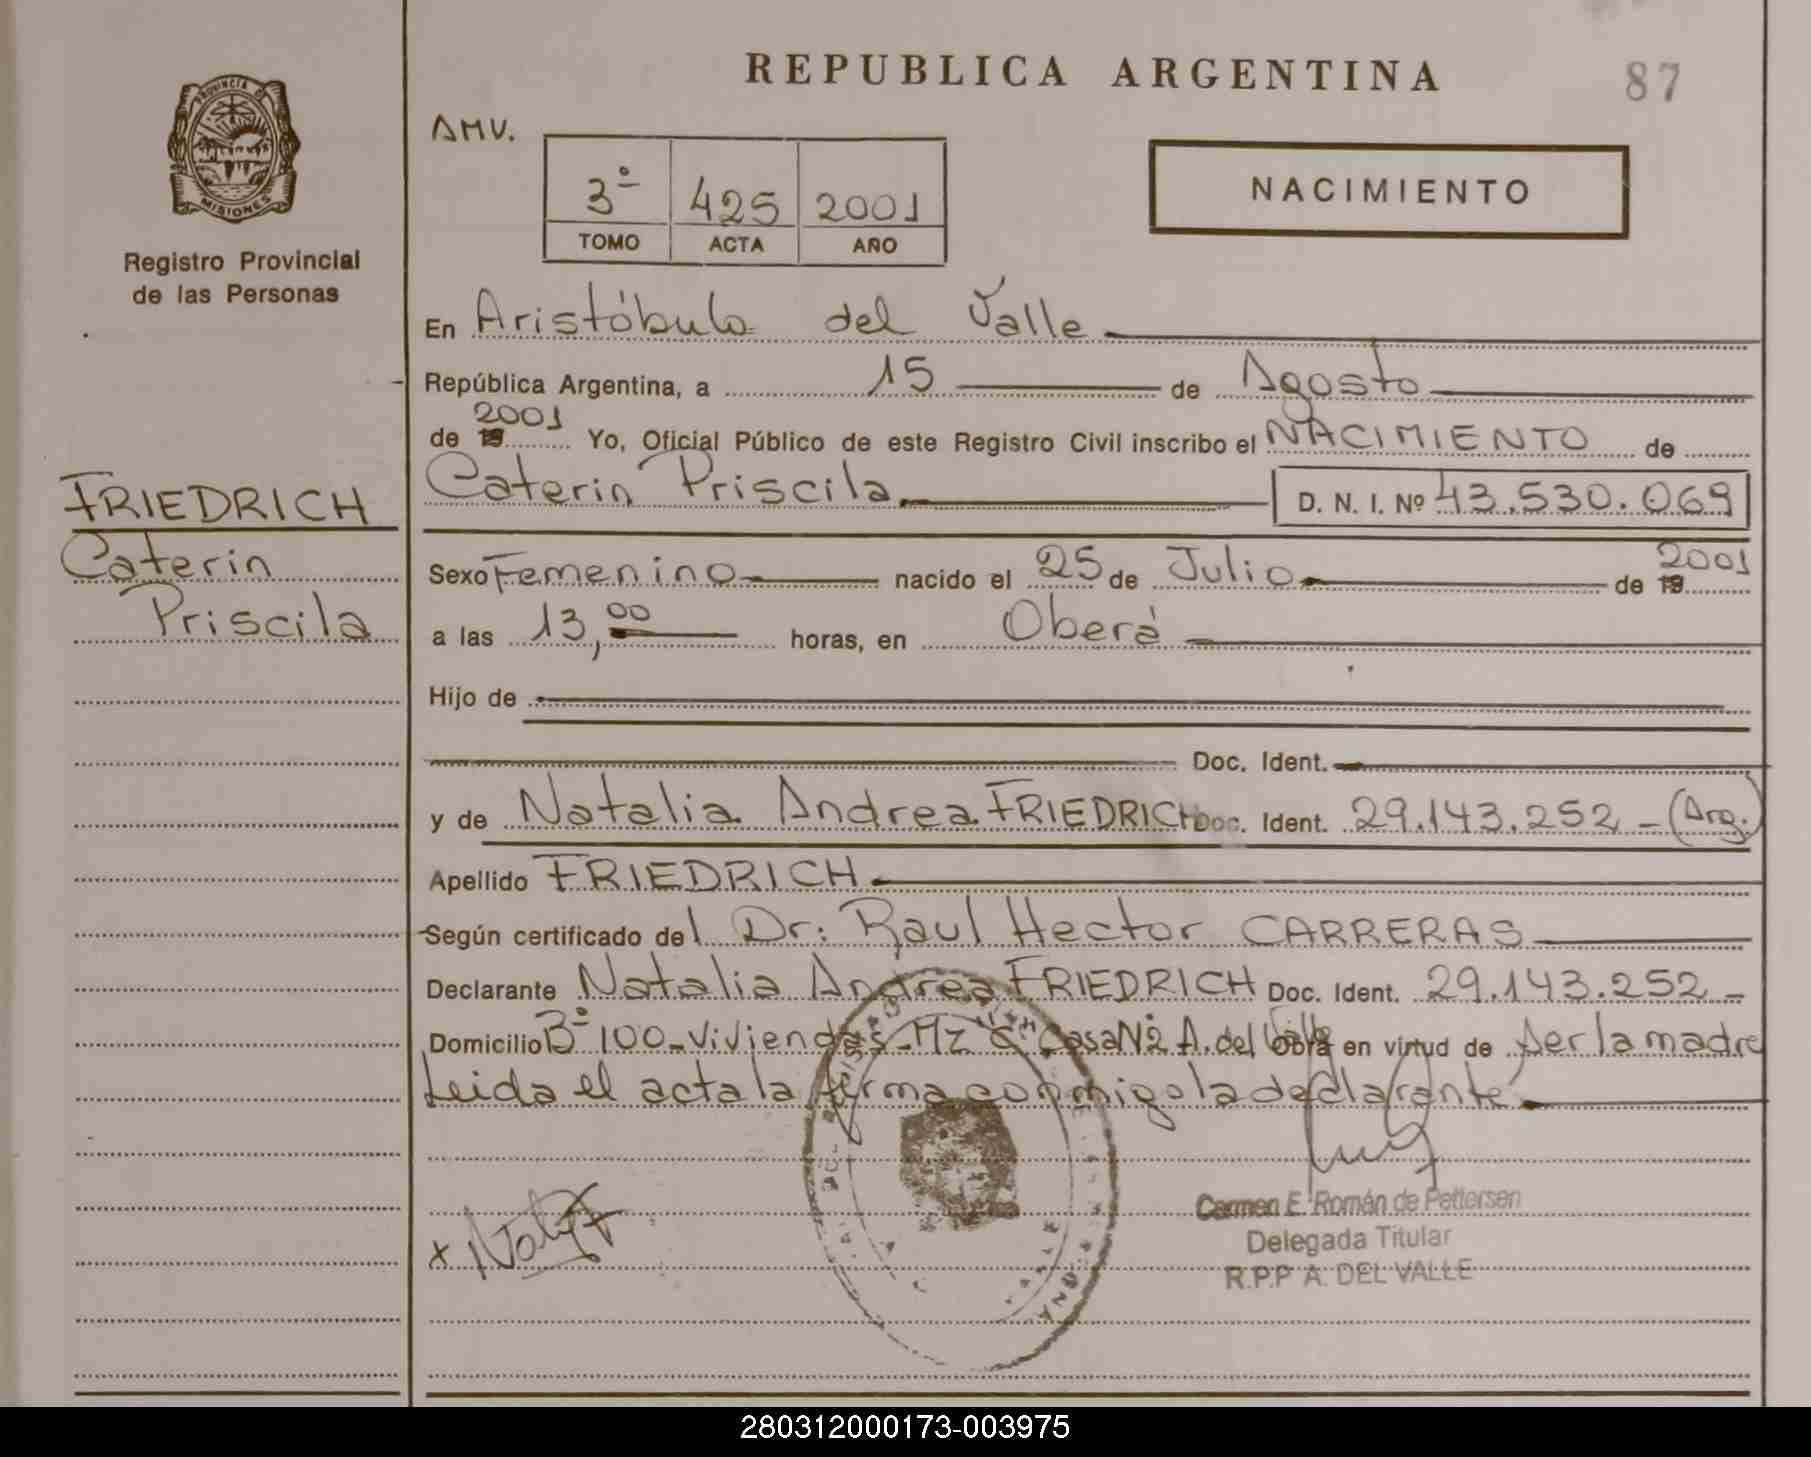 REPUBLICA ARGENTINA
87
PROVINCIA D
MISIONES
Registro Provincial
de las Personas
AMV.
3º 425 2001
TOMO ACTA AÑO
NACIMIENTO
En Aristóbulo del Valle
República Argentina, a 15 de Agosto
2001
de 19 Yo, Oficial Público de este Registro Civil inscribo el NACIMIENTO de
Caterin Priscila D. N. I. Nº 43.530.069
FRIEDRICH
Caterin
Priscila
Sexo Femenino nacido el 25 de Julio de 19 2001
a las 13,00 horas, en Oberá
Hijo de
Doc. Ident.
y de Natalia Andrea FRIEDRICH Doc. Ident. 29.143.252 - (Arg.)
Apellido FRIEDRICH
Según certificado del Dr: Raul Hector CARRERAS
Declarante Natalia Andrea FRIEDRICH Doc. Ident. 29.143.252 -
Domicilio Bº 100 - Viviendas - Mz "C" Casa Nº2 A. del Valle Obra en virtud de ser la madre
Leida el acta la firma conmigo la declarante
x Naty F
Carmen E. Román de Pettersen
Delegada Titular
R.P.P A. DEL VALLE
280312000173-003975